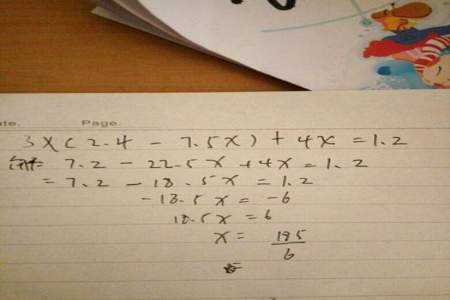 ate. Page.
3×(2.4 - 7.5x) + 4x = 1.2
解= 7.2 - 22.5x + 4x = 1.2
= 7.2 - 18.5x = 1.2
-18.5x = -6
18.5x = 6
x = 185/6